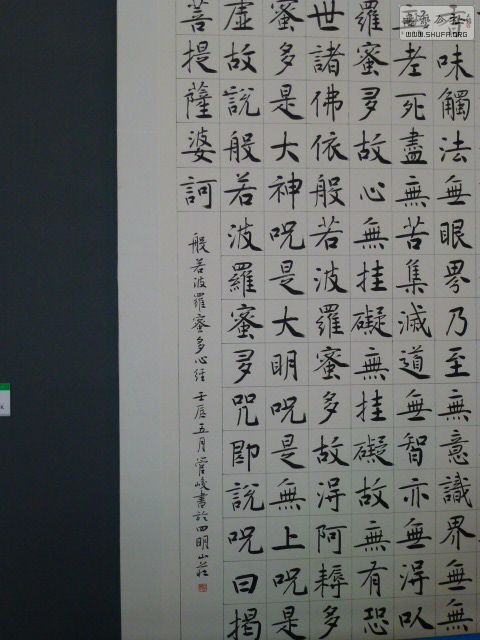 味觸法無眼界乃至無意識界無無
老死盡無苦集滅道無智亦無得以
羅蜜多故心無挂礙無挂礙故無有恐
世諸佛依般若波羅蜜多故得阿耨多
蜜多是大神咒是大明咒是無上咒是
虛故說般若波羅蜜多咒即說咒曰揭
菩提薩婆訶
般若波羅蜜多心經 壬辰五月管峻書於四明山莊
WWW.SHUFA.ORG